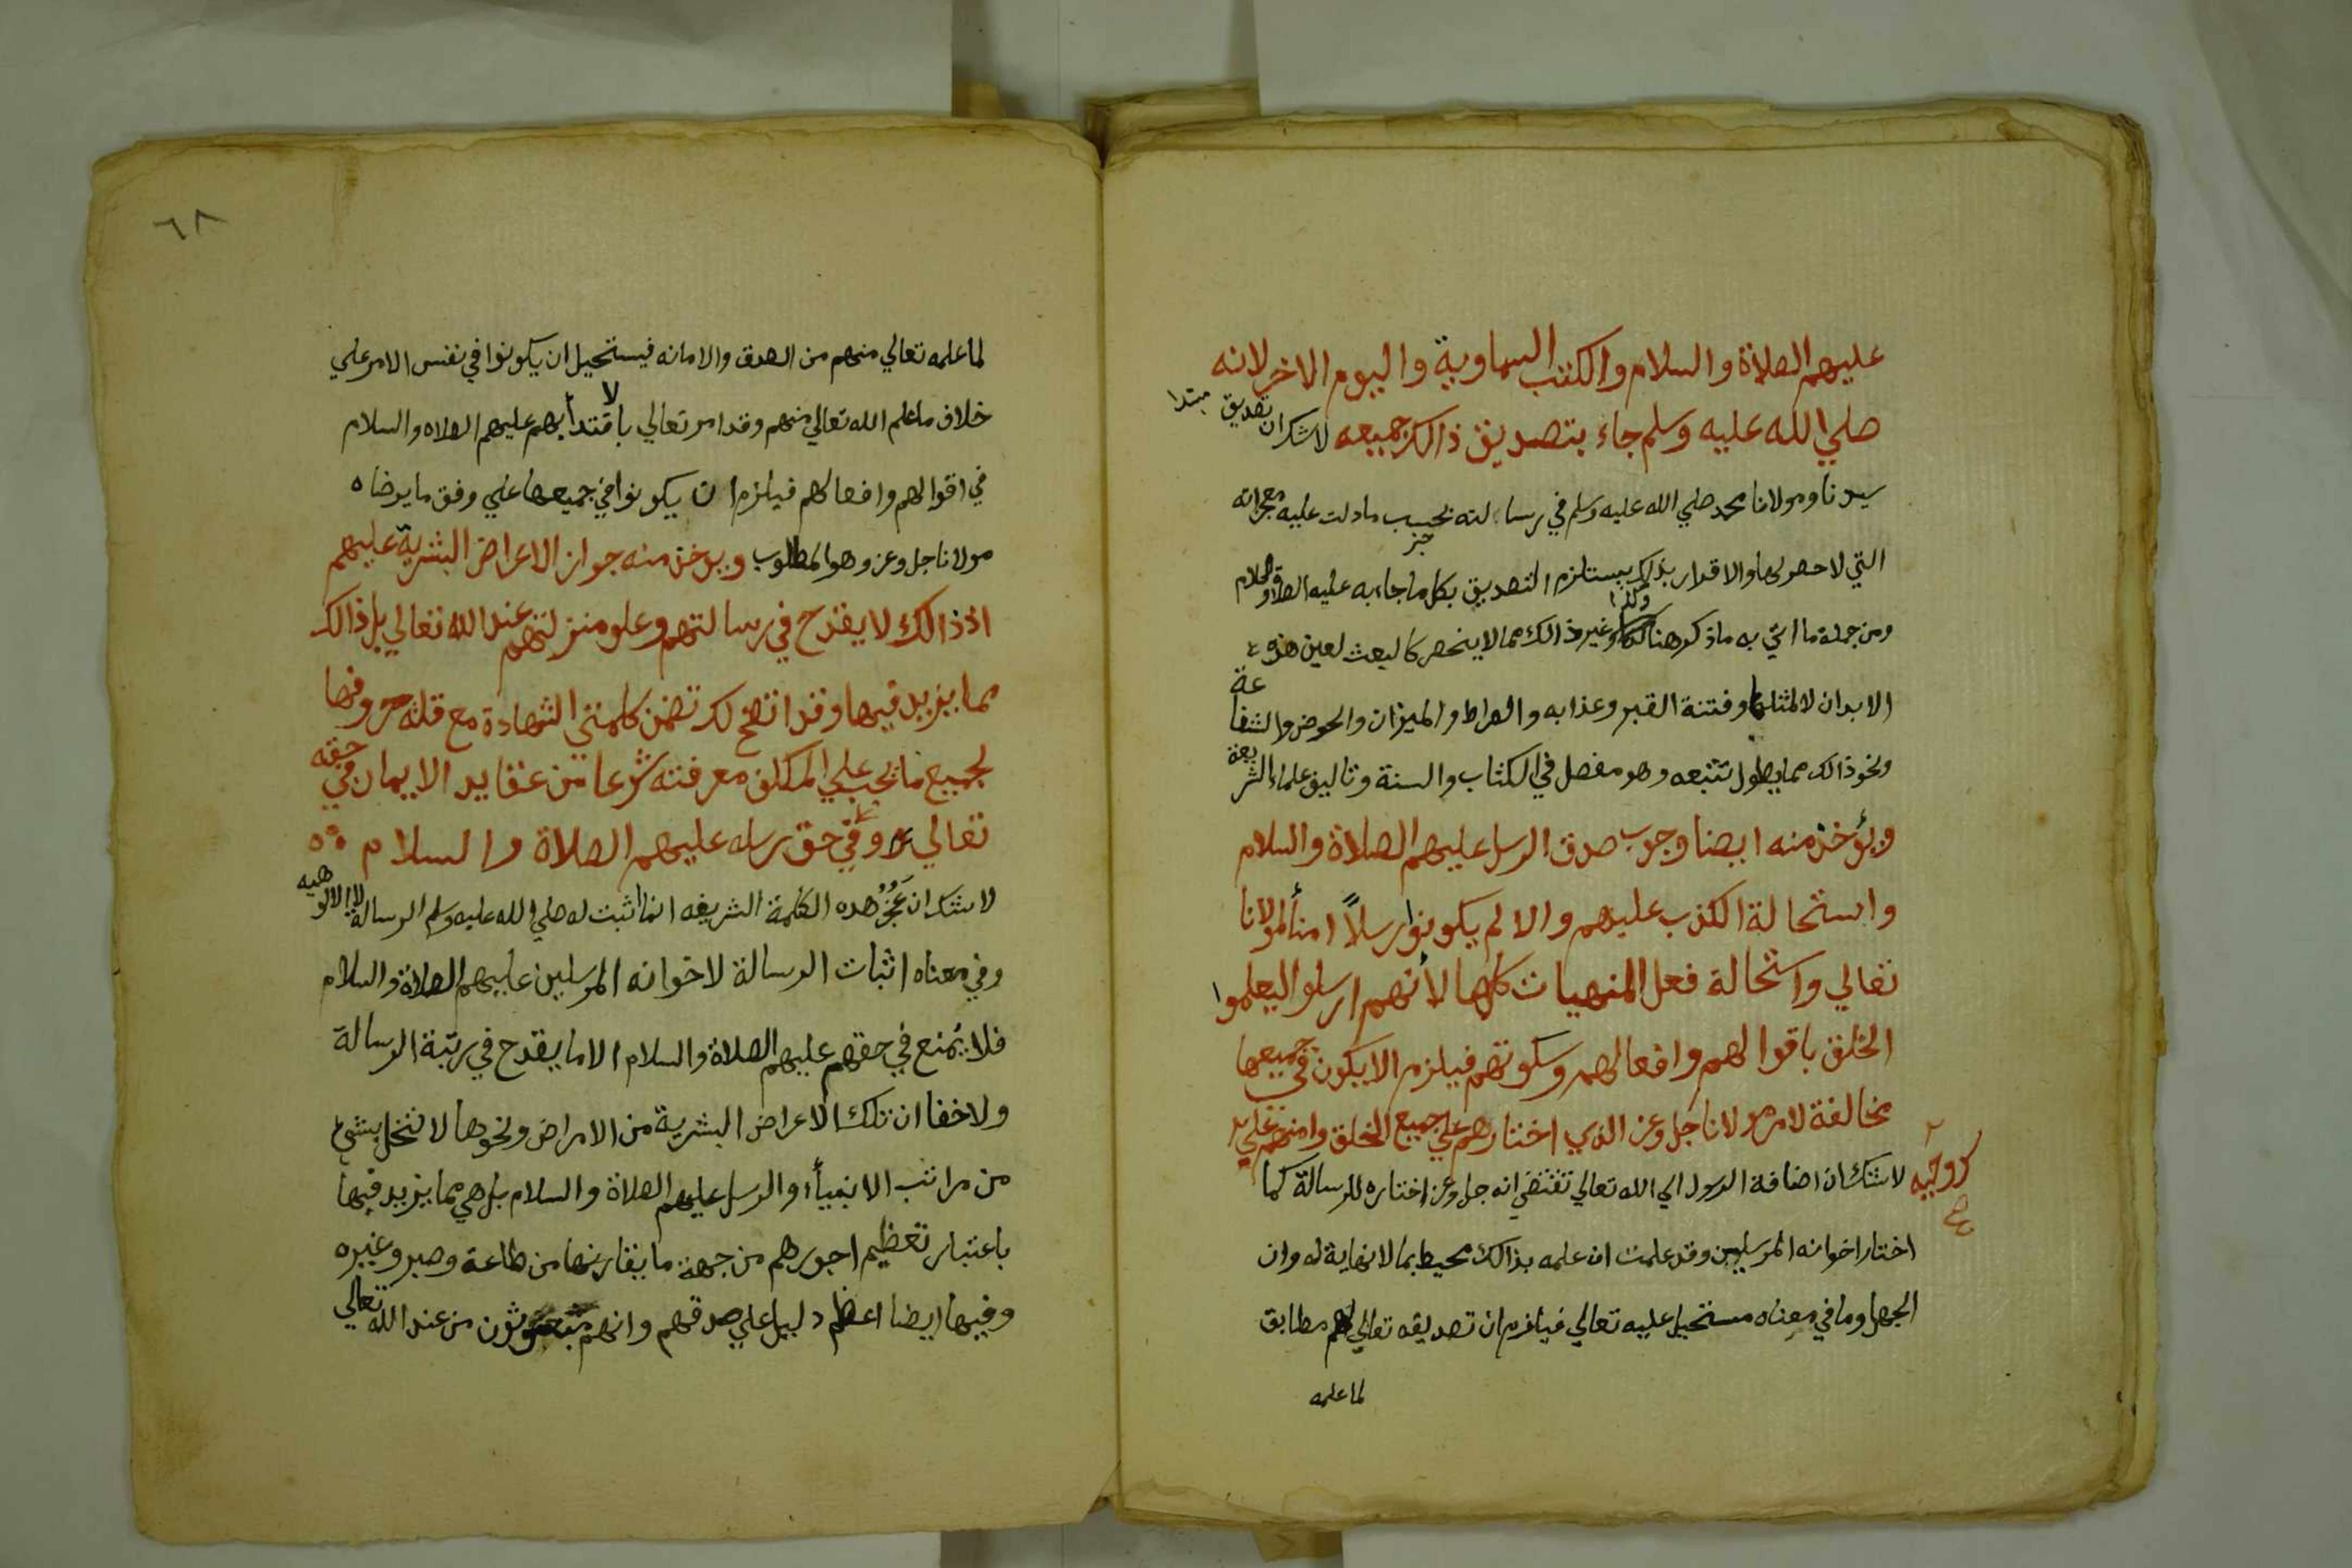 عليهم الصلاة والسلام والكتب السماوية واليوم الاخر لانه
صلي الله عليه وسلم جاء بتصديق ذالك جميعه لاشك ان تصديق مبتدا
سيدنا ومولانا محمد صلي الله عليه وسلم في رسالته بحسب مادلت عليه معجزاته
التي لا حصر لها والاقرار بذلك يستلزم خبر التصديق بكل ما جاء به عليه الصلاة والسلام
ومن جملة ما اتي به ماذكر هنا وكذا وغير ذالك مما لا ينحصر كالبعث لعين هذه
الابدان لا لمثلها وفتنة القبر وعذابه والصراط والميزان والحوض والشفاعة
ونحو ذالك مما يطول تتبعه وهو مفصل في الكتاب والسنة وتاليف علماء الشريعة
ويؤخذ منه ايضا وجوب صدق الرسل عليهم الصلاة والسلام
واستحالة الكذب عليهم والا لم يكونوا رسلاً امنأ لمولانا
تعالي واستحالة فعل المنهيات كلها لأنهم ارسلوا ليعلموا
الخلق باقوالهم وافعالهم وسكوتهم فيلزم الا يكون في جميعها
مخالفة لامر مولانا جل وعز الذي اختارهم علي جميع الخلق وامنهم علي
وحيه
لاشك ان اضافة الرسول الي الله تعالي تقتضي انه جل وعز اختاره للرسالة كما
اختار اخوانه المرسلين وقد علمت ان علمه بذالك محيط بما لا نهاية له وان
الجهل وما في معناه مستحيل عليه تعالي فيلزم ان تصديقه تعالي لهم مطابق
لما علمه
٦٨
لما علمه تعالي منهم من الصدق والامانه فيستحيل ان يكونوا في نفس الامر علي
خلاف ما علم الله تعالي منهم وقد امر تعالي بالاقتدأ بهم عليهم الصلاه والسلام
في اقوالهم وافعالهم فيلزم ان يكونوا في جميعها علي وفق ما يرضاه
مولانا جل وعز وهو المطلوب ويوخذ منه جواز الاعراض البشرية عليهم
اذ ذالك لا يقدح في رسالتهم وعلو منزلتهم عند الله تعالي بل ذالك
مما يزيد فيها وقد اتضح لك تضمن كلمتي الشهادة مع قلة حروفها
لجميع ما يجب علي المكلف معرفته شرعا من عقايد الايمان في حقه
تعالي وفي حق رسله عليهم الصلاة والسلام
لاشك ان عَجُزُ هده الكلمة الشريفه انما اثبت له صلي الله عليه وسلم الرسالة لا الالوهيه
وفي معناه اثبات الرسالة لاخوانه المرسلين عليهم الصلاة والسلام
فلا يُمنع في حقهم عليهم الصلاة والسلام الا ما يقدح في رتبة الرسالة
ولا خفا ان تلك الاعراض البشرية من الامراض ونحوها لا تخل بشيء
من مراتب الانبيأء والرسل عليهم الصلاة والسلام بل هي مما يزيد فيها
باعتبار تعظيم اجورهم من جهة ما يقارنها من طاعة وصبر وغيره
وفيها ايضا اعظم دليل علي صدقهم وانهم مبعوثون من عند الله تعالي